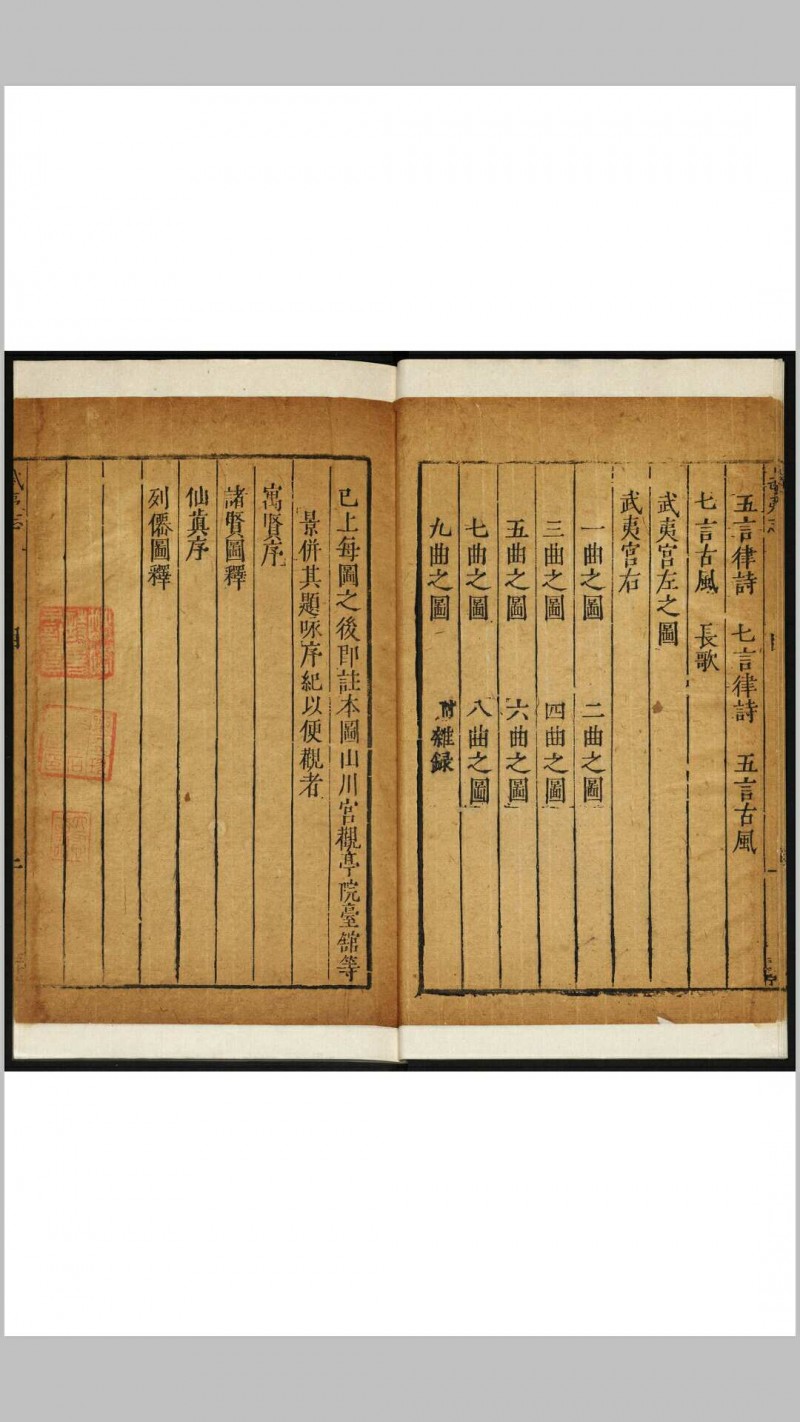 五言律詩　七言律詩　五言古風
七言古風　長歌
武夷宮左之圖
武夷宮右
一曲之圖　二曲之圖
三曲之圖　四曲之圖
五曲之圖　六曲之圖
七曲之圖　八曲之圖
九曲之圖　附雜録
已上每圖之後即註本圖山川宮觀亭院臺舘等
景併其題咏序紀以便觀者
寓賢序
諸賢圖釋
仙眞序
列僊圖釋